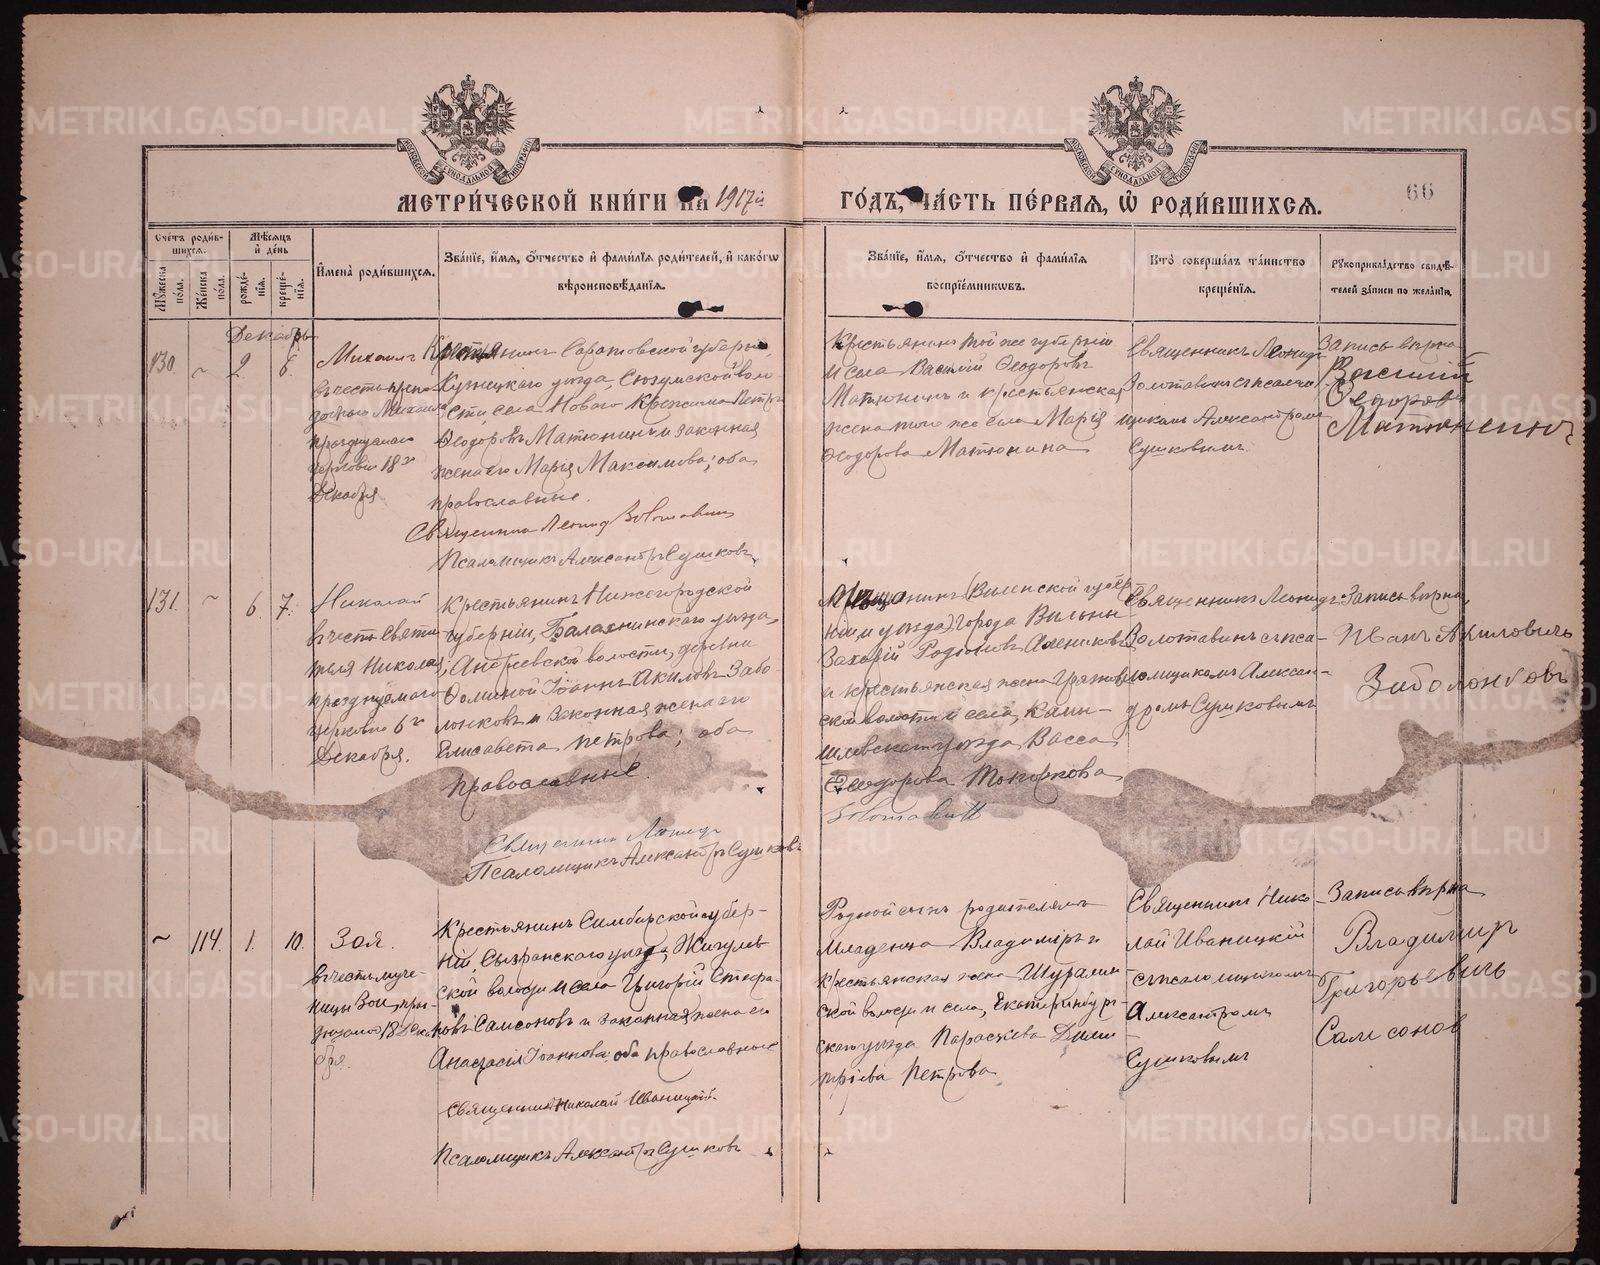 МЕТРИ́ЧЕСКОЙ КНИ́ГИ НА 1917й
ГО́ДЪ, ЧА́СТЬ ПЕ́РВАЯ, Ѡ҆ РОДИ́ВШИХСЯ.
66
Сче́тъ роди́вшихся.
Му́жеска по́ла.
Же́нска по́ла.
Мѣ́сяцъ и҆ де́нь
рожде́нїя.
креще́нїя.
И҆мена̀ роди́вшихся.
Зва́нїе, и҆́мя, ѻ҆́тчество и҆ фами́лїя роди́телей, и҆ како́гѡ
вѣроисповѣ́данїя.
Зва́нїе, и҆́мя, ѻ҆́тчество и҆ фами́лїя
воспрїе́мникѡвъ.
Кто̀ соверша́лъ та́инство
креще́нїя.
Рукоприкла́дство свидѣ́-
телей за́писи по жела́нїю.
Декабрь
130.
~
2.
6.
Михаилъ
въ честь препо
добнаго Михаила
празднуемаго
церковію 18го
Декабря.
Крестьянинъ Саратовской губерніи,
Кузнецкого уѣзда, Сюзумской воло-
сти, села Нового Кряжима Петръ
Ѳеодоровъ Матюнинъ и законная
жена его Марія Максимова; оба
православные.
Священникъ Леонид Золотавинъ
Псаломщикъ Александръ Сушковъ
Крестьянинъ той же губерніи
и села Василій Ѳеодоровъ
Матюнинъ и крестьянская
жена того же села Марія
Ѳеодорова Матюнина
Священникъ Леонидъ
Золотавинъ съ псалом
щикомъ Александромъ
Сушковымъ
Запись вѣрна
Василий
Федоров
Матюнинъ
131.
~
6.
7.
Николай
въ честь Святи
теля Николая,
празднуемаго
церковію 6го
Декабря.
Крестьянинъ Нижегородской
губерніи, Балахнинскаго уѣзда,
Андреевской волости, деревни
Ѳоминой Іоаннъ Акиловъ Забо
лонковъ и законная жена его
Елисавета Петрова; оба
православные.
Священникъ Леонидъ
Псаломщикъ Александръ Сушковъ
Мѣщанинъ (Виленской губер
ніи и уѣзда) города Вильны
Захарій Родіоновъ
и крестьянская жена
ской волости и села, Камы-
шловскаго уѣзда Васса
Ѳеодорова Токарева
Золотавинъ
Священникъ Леонидъ
Золотавинъ съ пса-
ломщикомъ Алексан-
дромъ Сушковымъ
Запись вѣрна,
Иванъ Акиловичъ
Заболонковъ
~
114.
1.
10.
Зоя.
въ честь муче-
ницы Зои, праз
днуемой 18 Дека
бря.
Крестьянинъ Симбирской губер-
ніи, Сызранскаго уѣзда, Жигулев
ской волости и села Григорій Стефа-
новъ Самсоновъ и законная жена его
Анастасія Іоаннова; оба православные
Священникъ Николай Иваницкій.
Псаломщикъ Александръ Сушковъ
Родной сынъ родителямъ
младенца Владиміръ и
крестьянская жена Шуралин
ской волости и села, Екатеринбург-
скаго уѣзда Параскева Дими
тріева Петрова
Священникъ Нико
лай Иваницкій
съ псаломщикомъ
Александромъ
Сушковымъ
Запись вѣрна
Владимир
Григорьевичъ
Самсонов
METRIKI.GASO-URAL.RU